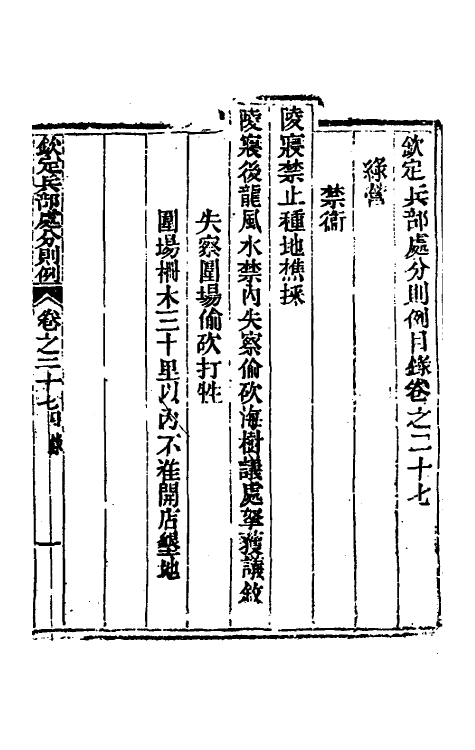 欽定兵部處分則例目錄卷之二十七
綠營
禁衞
陵寢禁止種地樵採
陵寢後龍風水禁內失察偷砍海樹議處拏獲議敘
失察圍場偷砍打牲
圍場柵木三十里以內不准開店墾地
欽定兵部處分則例
卷之二十七目錄
一